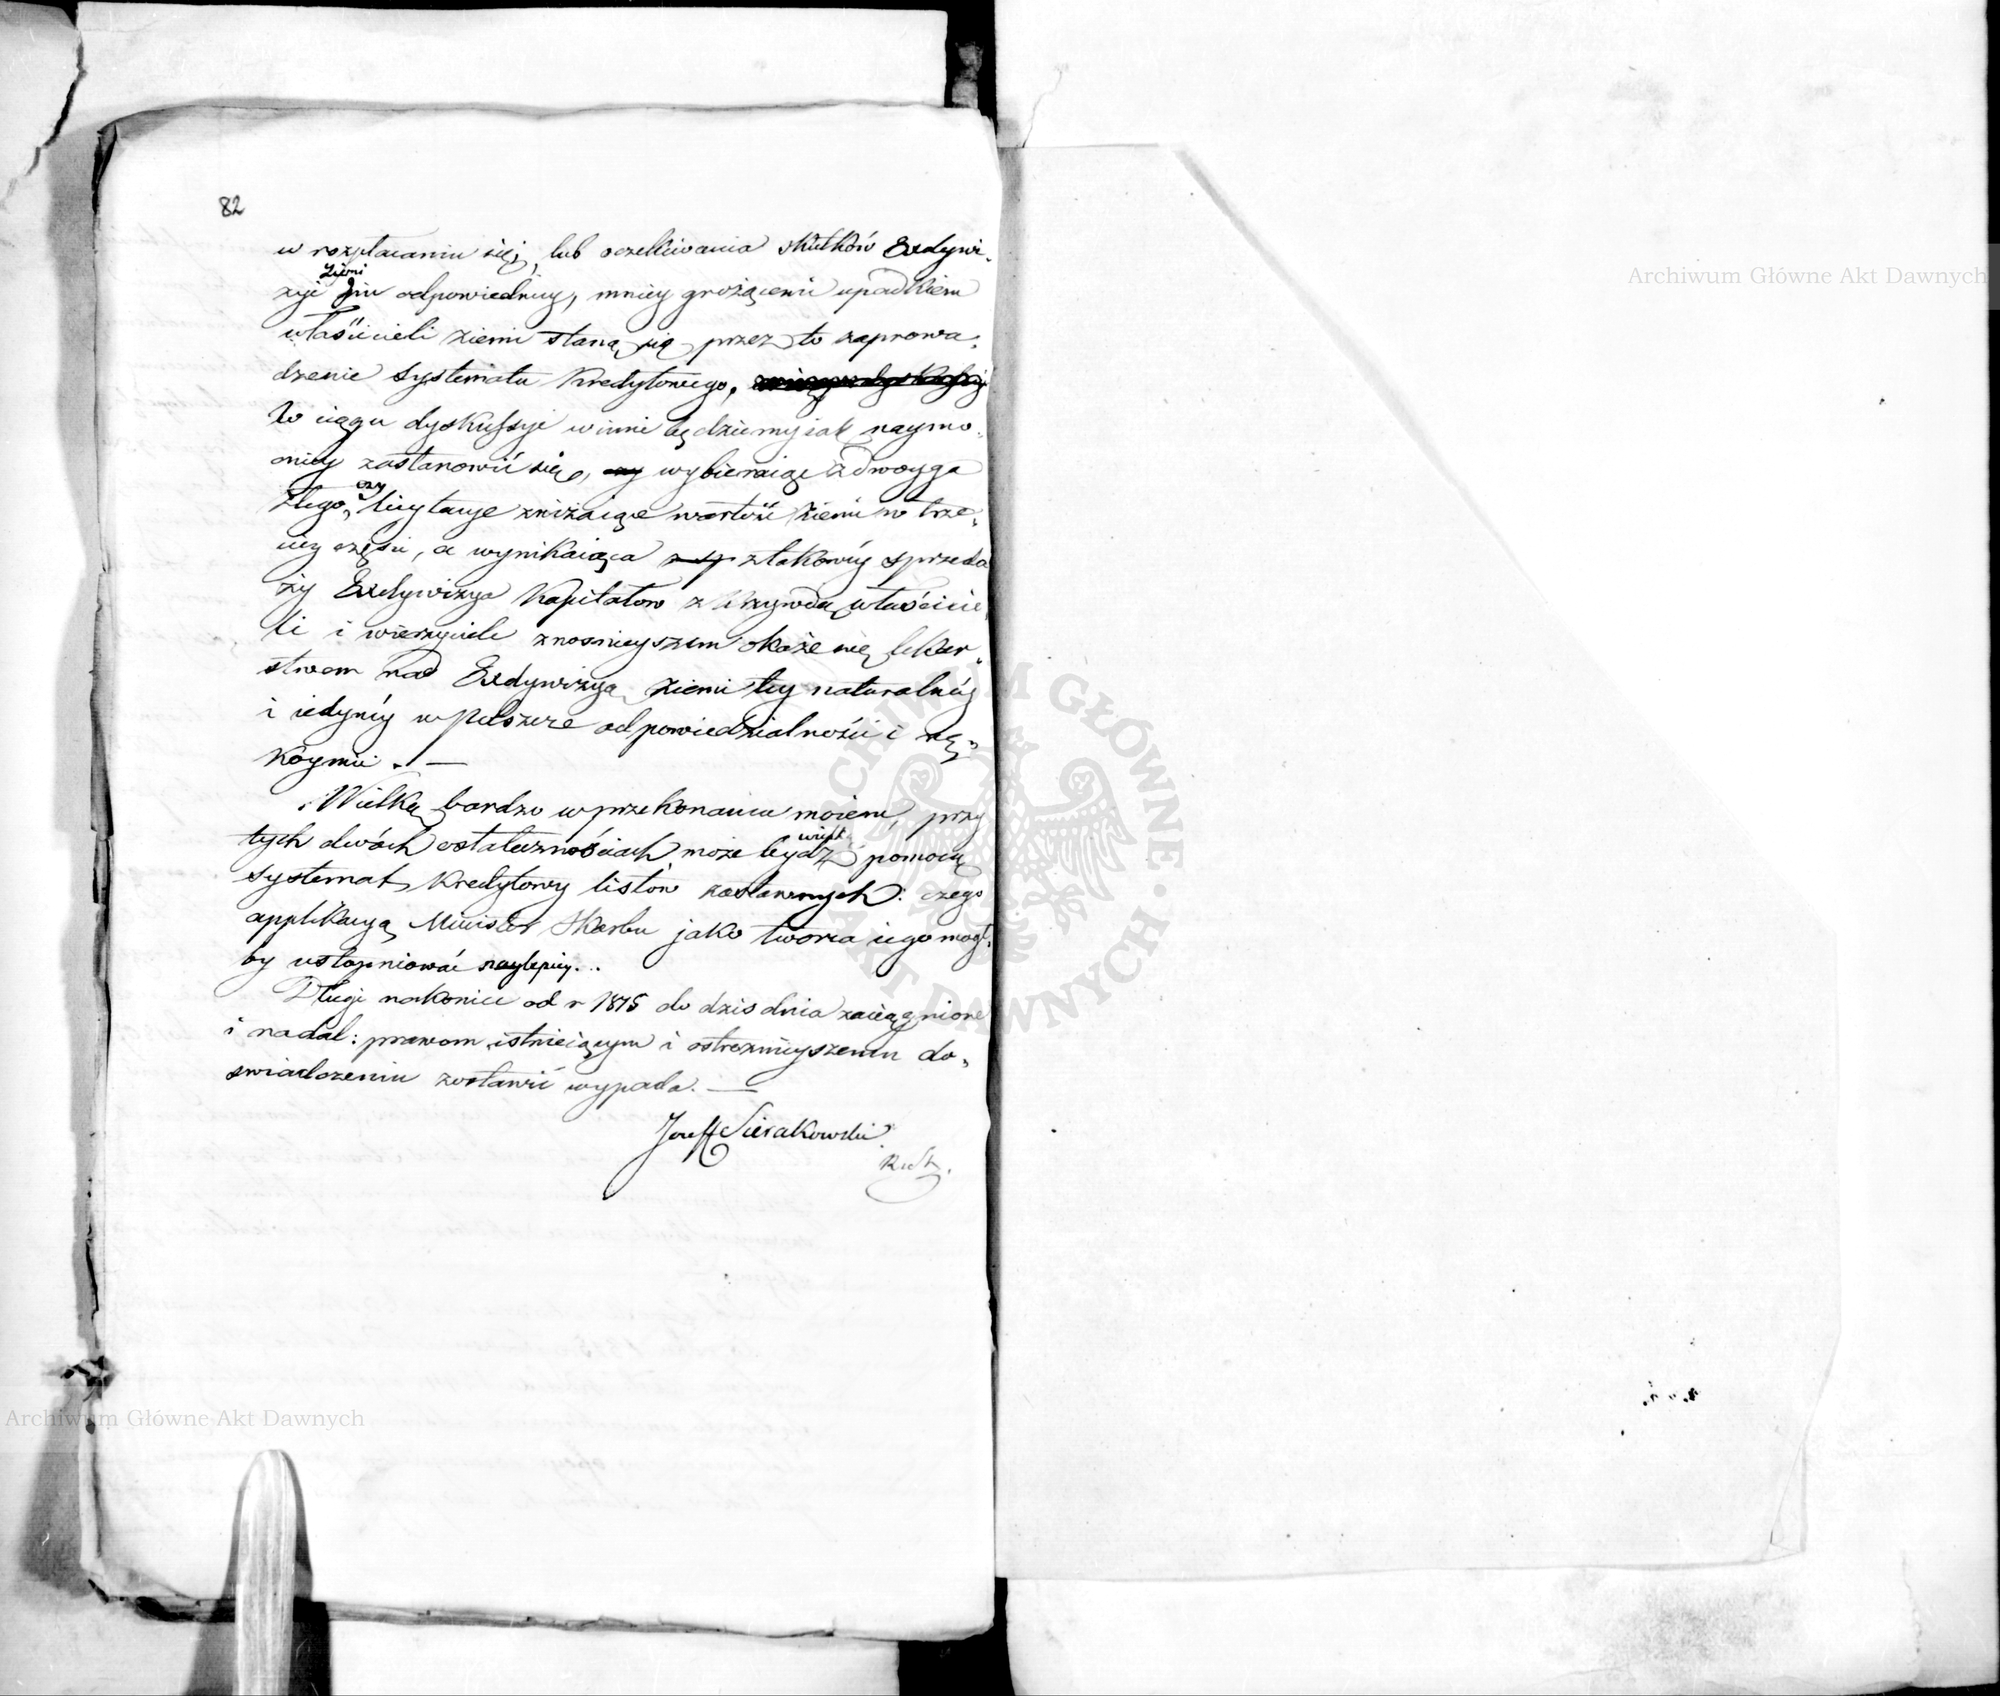 82
w rozpłacaniu się, lub oczekiwania skutków Exdywi-
zyi Ziemi odpowiedniey, mniey grożącemi upadkiem
właścicieli ziemi staną się przez to zaprowa-
dzenie systematu Kredytowego.
W ciągu dyskussyi winni będziemy iak naymo-
cniey zastanowić się, czy wybieraiąc z dwoyga
złego, czy licytacye zniżaiące wartość ziemi w trze-
ciey części, a wynikaiąca z takowéy sprzeda
ży Exdywizya Kapitałow z krzywdą właścicie
li i wierzycieli znośnieyszem okaże się lekar-
stwem nad Exdywizyą ziemi tey naturalnéy
i iedynéy w Polszcze odpowiedzialności i rę-
koymii. —
Wielką bardzo w przekonaniu moiem, przy
tych dwóch ostatecznościach może bydź pomocą
systemat Kredytowy listów zastawnych: czego
applikacyą Minister Skarbu jako tworca iego mogł-
by ustopniować naylepiey...
Długi nakoniec od r 1815 do dzis dnia zaciągnione
i nadal: prawom istnieiącym i ostrożnieyszemu do-
swiadczeniu zostawić wypada. —
Jozeff Sierakowski